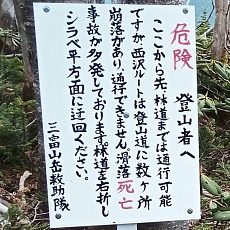 危険
登山者へ
ここから先、林道までは通行可能
ですが西沢ルートは登山道に数ヶ所
崩落があり、通行できません。滑落死亡
事故が多発しております。林道を右折し
シラベ平方面に迂回ください。
三富山岳救助隊